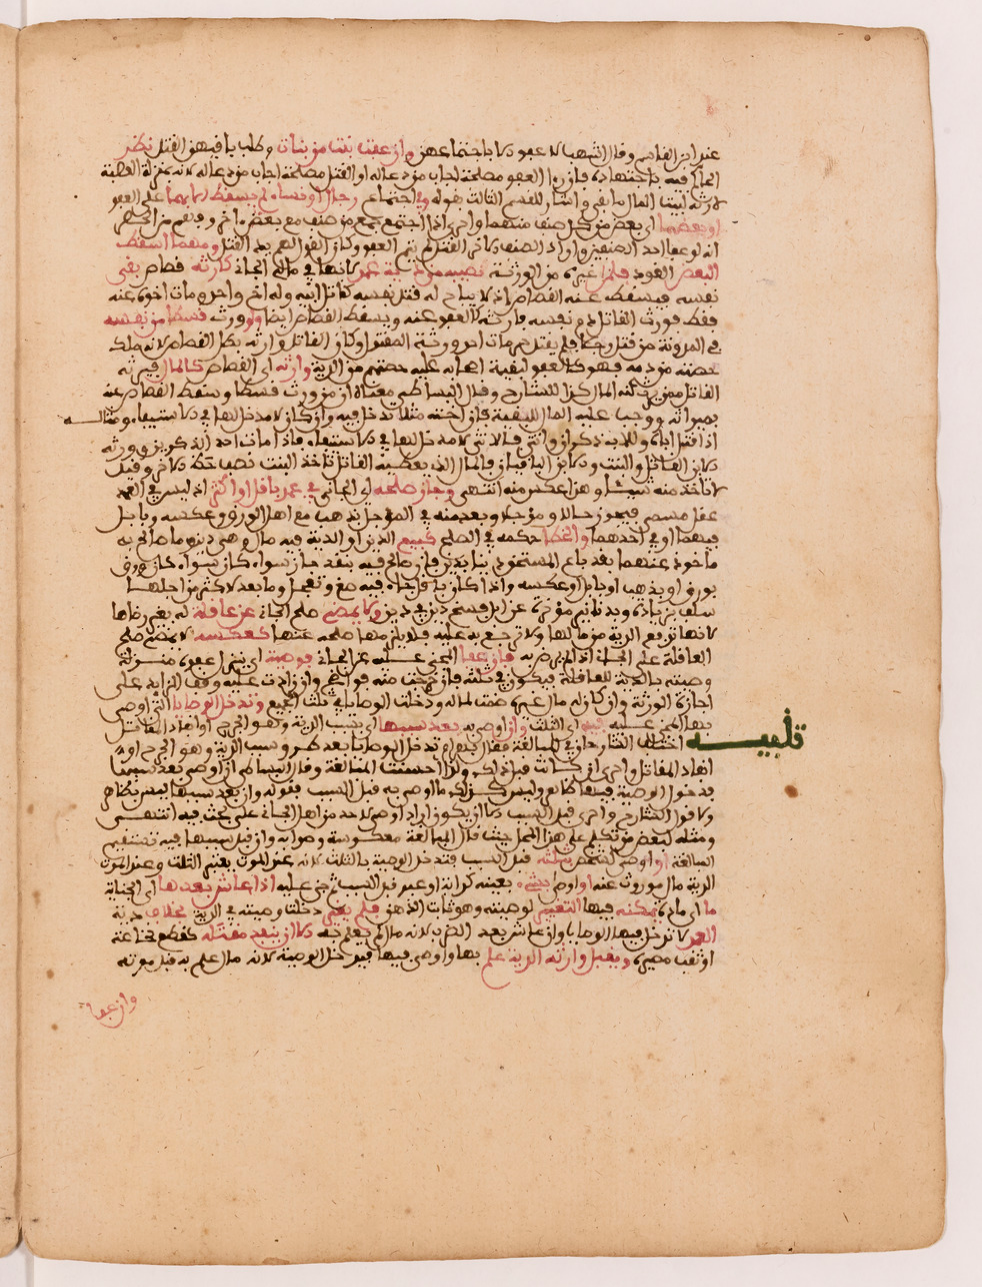 عند ابن القاسم وقال اشهب لا عفو الا باجتماعهن وان عفت بنت من بنات وطلب باقيهن القتل نظر
الحاكم فيه باجتهاده فان راى العفو مصلحة اجاب من دعا له او القتل مصلحة اجاب من دعا له لانه بمنزلة العصبة
لارثه لبيت المال ما بقي واشار للقسم الثالث بقوله وفي اجتماع رجال او نساء لم يسقط الا بهما على العفو
او ببعضهما اي بعض من كل صنف منهما واحرى اذا اجتمع جميع من صنف مع بعض اخر وفهم من الحصر
انه لو عفا احد الصنفين واراد الصنف الاخر القتل لم يتم العفو وكان القول لمن بيده القتل ومهما اسقط
البعض القود فلمن غيره من الورثة نصيبه من دية عمد كانها في مال الجاني كارثه قصاص بقي
نفسه فيسقط عنه القصاص اذ لا يباح له قتل نفسه كقاتل ابيه وله اخ واحد ومات اخوه عنه
فقط فورث القاتل دم نفسه فارثه كالعفو عنه ويسقط القصاص ايضا ولو ورث قسطا من نفسه
في المدونة من قتل رجلا فلم يقتل حتى مات احد ورثة المقتول وكان القاتل وارثه بطل القصاص لانه ملك
حصته من دمه فهو كالعفو لبقية اصحابه عليه حصتهم من الدية وارثه اي القصاص كالمال فيرثه
القاتل ممن يملكه المال كذا للشارح وقال البساطي معناه ان من ورث قسطا وسقط القصاص عنه
بميراثه ووجب عليه المال للبقية فان اخته مثلا تدخل فيه وان كان لا مدخل لها في الاستيفاء ومثاله
اذا قتل اباه وللاب ذكران وانثى فالانثى لا مدخل لها في الاستيفاء فاذا مات احد الذكرين وورثه
الابن القاتل والبنت والابن الباقي فان المال الذي يعطيه القاتل تاخذ البنت نصف حظ الاخر وقيل
لا تاخذ منه شيئا وهذا عكس منه انتهى وجاز صلحه اي الجاني في عمد باقل او اكثر اذ ليس في العمد
عقل مسمى فيجوز حالا ومؤجلا وبعد منه في المؤجل بذهب مع اهل الورق وعكسه وبابل
فيهما او في احدهما والخطا حكمه في الصلح كبيع الدين او الدية فيه مال وهي دين وما صالح به
ماخوذ عنهما بعد باع المستحق دينا بدين فان صالح فيه بنقد جاز سواء كان سواء كان
بورق او بذهب او بابل او عكسه واذا كان باقل جاء فيه ضع وتعجل وما بعد لاكثر من اجلها
سلف بزيادة وبدنانير مؤخرة عن ابل فسخ دين في دين ولا يمضي صلح الجاني عن عاقلة له بغير رضاها
لانها تدفع الدية من مالها ولا ترجع به عليه فلا يلزمها صلحه عنها كعكسه لا يمضي صلح
العاقلة على الجاني اذا لم يرض به فان عفا المجني عليه عن الجاني فوصية اي يتنزل عفوه منزلة
وصيته بالدية للعاقلة فيكون في ثلثه فان خرجت منه فواضح وان زادت عليه وقف الزايد على
اجازة الورثة وان كان له مال غيره ضمت لماله ودخلت الوصايا في ثلث الجميع وتدخل الوصايا التي اوصى
بها المجني عليه فيه اي الثلث وان اوصى به بعد سببها اي سبب الدية وهو الجرح او انفاذ المقاتل
تنبيه اختلف الشارحان في المبالغة فقال بهرام تدخل الوصايا بعد طرو سبب الدية وهو الجرح او
انفاذ المقاتل واحرى ان كانت قبل ذلك ولذا احسنت المبالغة وقال البساطي ان اوصى بعد سببها
فدخول الوصية فيها ظاهر وليس كذلك ما اوصى به قبل السبب فقوله وان بعد سببها ليس بظاهر
ولا قول الشارح واحرى قبل السبب الا ان يكون اراد اوصى لاحد من اهل الجاني على بحث فيه انتهى
ومثله لبعض من تكلم على هذا المحل حيث قال المبالغة معكوسة وصوابه وان قبل سببها فيه فتستقيم
المبالغة او اوصى لشخص بثلثه قبل السبب فتدخل الوصية بالثلث لانه عند الموت يعتبر الثلث وعند الموت
الدية مال موروث عنه او اوصى بشيء بعينه كدابة او عبد قبل السبب ثم جنى عليه اذا عاش بعدها اي الجناية
ما اي زمان يمكنه فيها التغيير لوصيته وهو ثابت الذهن فلم يغير دخلت وصيته في الدية بخلاف دية
العمد لا تدخل فيها الوصايا وان عاش بعد الضرب لانه مال لم يعلم به الا ان ينفد مقتله كقطع نخاعه
او ثقب مصير ويقبل وارثه الدية علم بها واوصى فيها فتدخل الوصية لانه مال علم به قبل موته
وان عفا